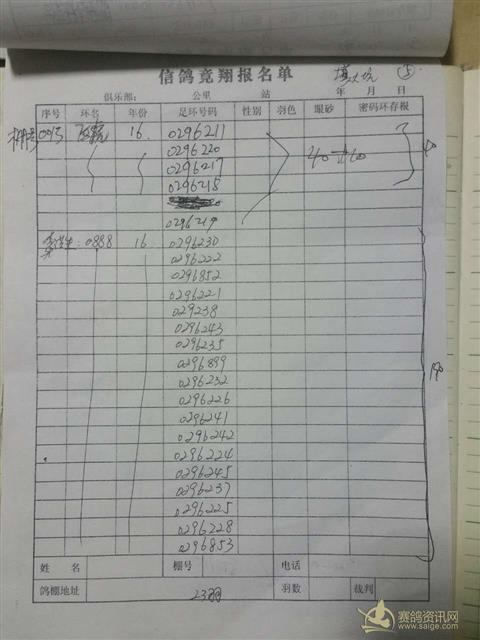 信鸽竞翔报名单
俱乐部: 公里 站 年 月 日
序号 环名 年份 足环号码 性别 羽色 眼砂 密码环存根
棚号 0013 16 0296211
0296220
0296217
0296218
0296219
0888 16 0296230
0296222
0296852
0296221
029238
0296243
0296235
0296899
0296232
0296226
0296241
0296242
0296224
0296245
0296237
0296225
0296228
0296853
姓名 棚号 电话
鸽棚地址 羽数 裁判
赛鸽资讯网
www.saige.com